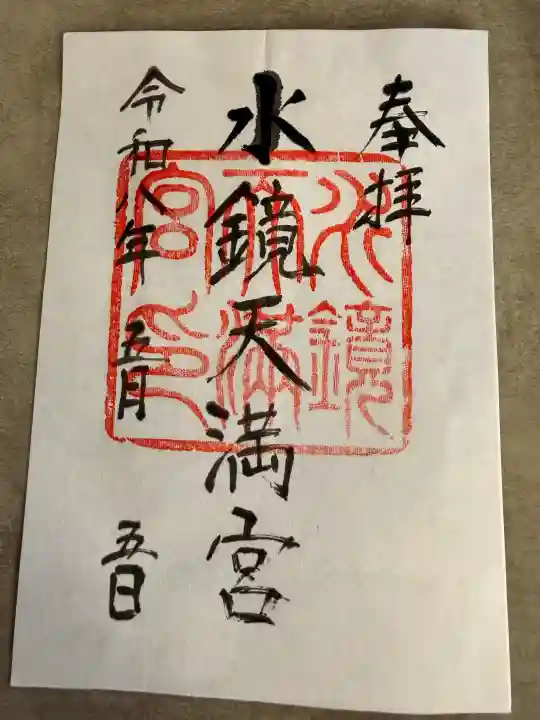 奉拝
水鏡天満宮
令和八年 五月 五日
水鏡
天満
宮印